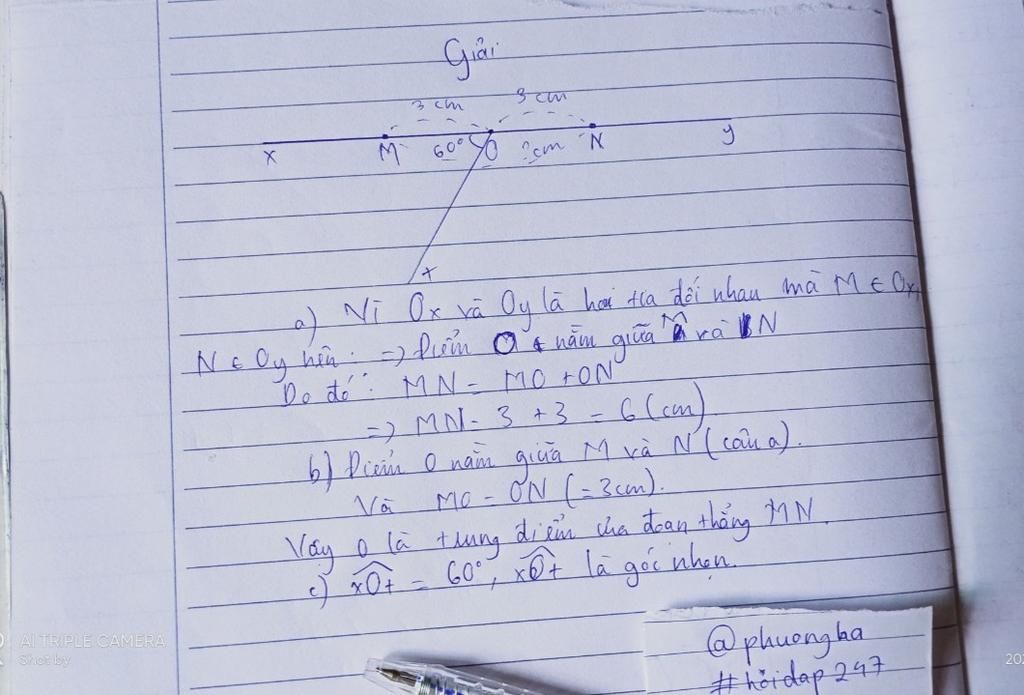 Giải
3 cm 3 cm
x M 60° O 3cm N y
t
a) Vì Ox và Oy là hai tia đối nhau mà M ∈ Ox,
N ∈ Oy nên: => Điểm O nằm giữa M và N
Do đó: MN = MO + ON
=> MN = 3 + 3 = 6 (cm)
b) Điểm O nằm giữa M và N (câu a).
Và MO = ON (= 3cm).
Vậy O là trung điểm của đoạn thẳng MN.
c) xOt = 60°, xOt là góc nhọn.
@phuongha
#hỏidap247
AI TRIPLE CAMERA
Shot by
202